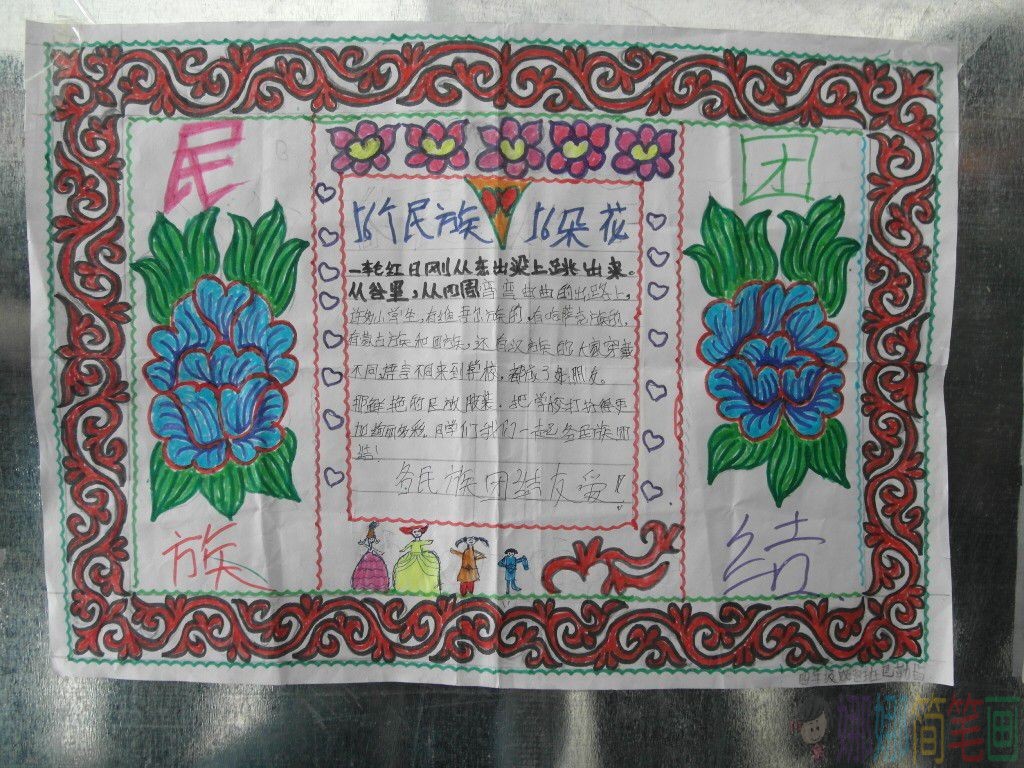 民
族
团
结
56个民族 56朵花
一轮红日刚从东山梁上跳出来。
从谷里,从四周弯弯曲曲的山路上,
许多小学生,有维吾尔族的,有哈萨克族的,
有蒙古族和回族,还有汉族的大家穿戴
不同语言不同来到学校,都成了好朋友。
那鲜艳的民族服装,把学校打扮得更
加绚丽多彩。同学们我们一起各民族团
结!
各民族团结友爱!
简笔画